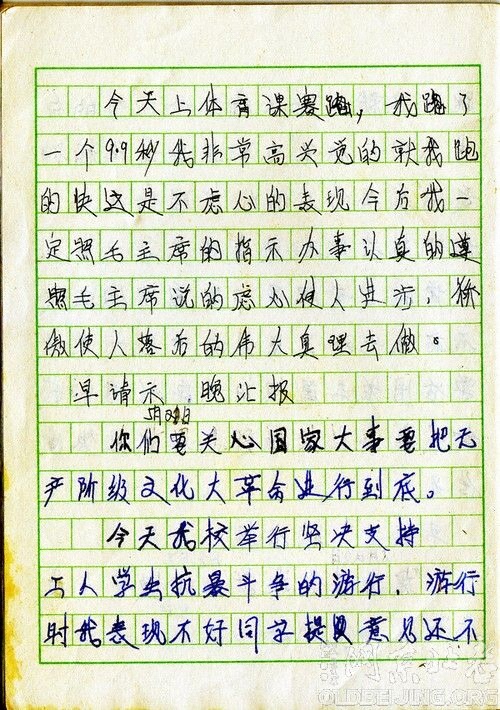 今天上体育课赛跑，我跑了
一个9.9秒我非常高兴觉的就我跑
的快这是不虑心的表现今后我一
定照毛主席的指示办事认真的遵
照毛主席说的虑心使人进步，骄
傲使人落后的伟大真理去做。
早请示 晚汇报
5月21日
你们要关心国家大事要把无
产阶级文化大革命进行到底。
今天我校举行坚决支持
工人学生抗暴斗争的游行，游行
时我表现不好同学提意见还不
OLDBEIJING.ORG